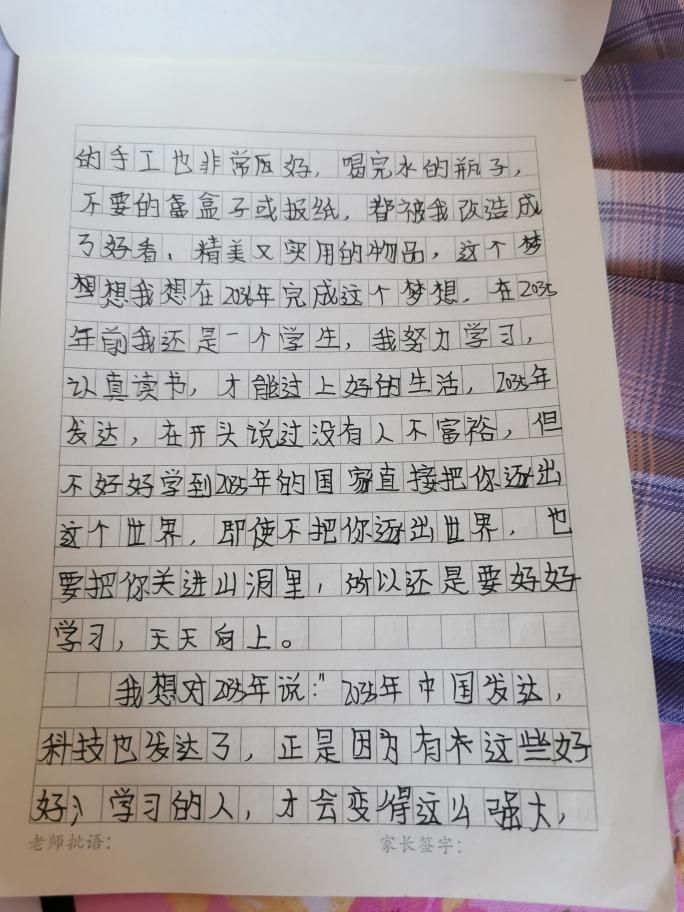 的手工也非常的好，喝完水的瓶子，
不要的盒子或报纸，都被我改造成
了好看、精美又实用的物品，这个梦
想想我想在2036年完成这个梦想，在2035
年前我还是一个学生，我努力学习，
认真读书，才能过上好的生活，2035年
发达，在开头说过没有人不富裕，但
不好好学到2035年的国家直接把你逐出
这个世界，即使不把你逐出世界，也
要把你关进山洞里，所以还是要好好
学习，天天向上。
我想对2035年说："2035年中国发达，
科技也发达了，正是因为有这些好
好学习的人，才会变得这么强大，
老师批语：
家长签字：